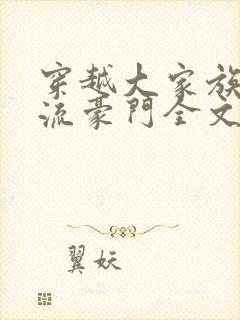 穿越大家族
流豪門全文
翼妖